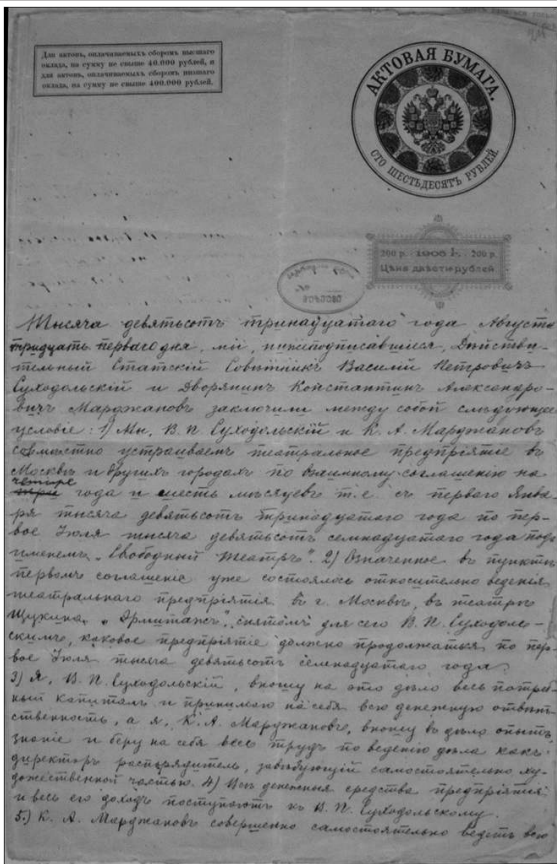 Для актовъ, оплачиваемыхъ сборомъ высшаго
оклада, на сумму не свыше 40.000 рублей, и
для актовъ, оплачиваемыхъ сборомъ низшаго
оклада, на сумму не свыше 400.000 рублей.
АКТОВАЯ БУМАГА.
СТО ШЕСТЬДЕСЯТЪ РУБЛЕЙ
200 р. 1906 г. 200 р.
Цѣна двѣсти рублей
Тысяча девятьсотъ тринадцатаго года Августа
тридцать перваго дня, мы, нижеподписавшіеся, Дѣйстви-
тельный Статскій Совѣтникъ Василій Петровичъ
Суходольскій и Дворянинъ Константинъ Александро-
вичъ Марджановъ заключили между собой слѣдующее
условіе: 1) Мы, В. П. Суходольскій и К. А. Марджановъ
совмѣстно устраиваемъ театральное предпріятіе въ
Москвѣ и другихъ городахъ по взаимному соглашенію на
четыре
три года и шесть мѣсяцевъ т. е. съ перваго Янва-
ря тысяча девятьсотъ тринадцатаго года по пер-
вое Іюля тысяча девятьсотъ семнадцатаго года подъ
именемъ „Свободный Театръ". 2) Означенное въ пунктѣ
первомъ соглашеніе уже состоялось относительно веденія
театральнаго предпріятія въ г. Москвѣ, въ театрѣ
Щукина, „Эрмитажъ", снятомъ для сего В. П. Суходоль-
скимъ, каковое предпріятіе должно продолжаться по пер-
вое Іюля тысяча девятьсотъ семнадцатаго года.
3) Я, В. П. Суходольскій, вношу на это дѣло весь потреб-
ный капиталъ и принимаю на себя всю денежную отвѣт-
ственность, а я, К. А. Марджановъ, вношу въ дѣло опытъ,
знаніе и беру на себя весь трудъ по веденію дѣла какъ
директоръ распорядитель, завѣдующій самостоятельно ху-
дожественной частью. 4) Всѣ денежныя средства предпріятія
и весь его доходъ поступаютъ къ В. П. Суходольскому.
5) К. А. Марджановъ совершенно самостоятельно ведетъ всю